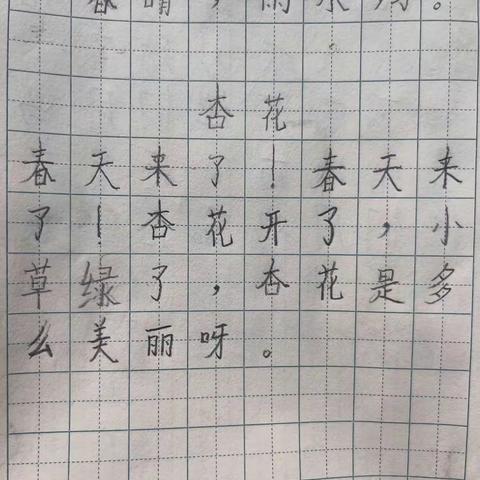 春晴，雨
杏花
春天来了！春天来
了！杏花开了，小
草绿了，杏花是多
么美丽呀。